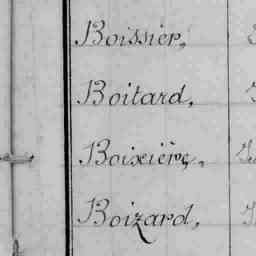 Boissier,
Boitard,
Boixière,
Boizard,